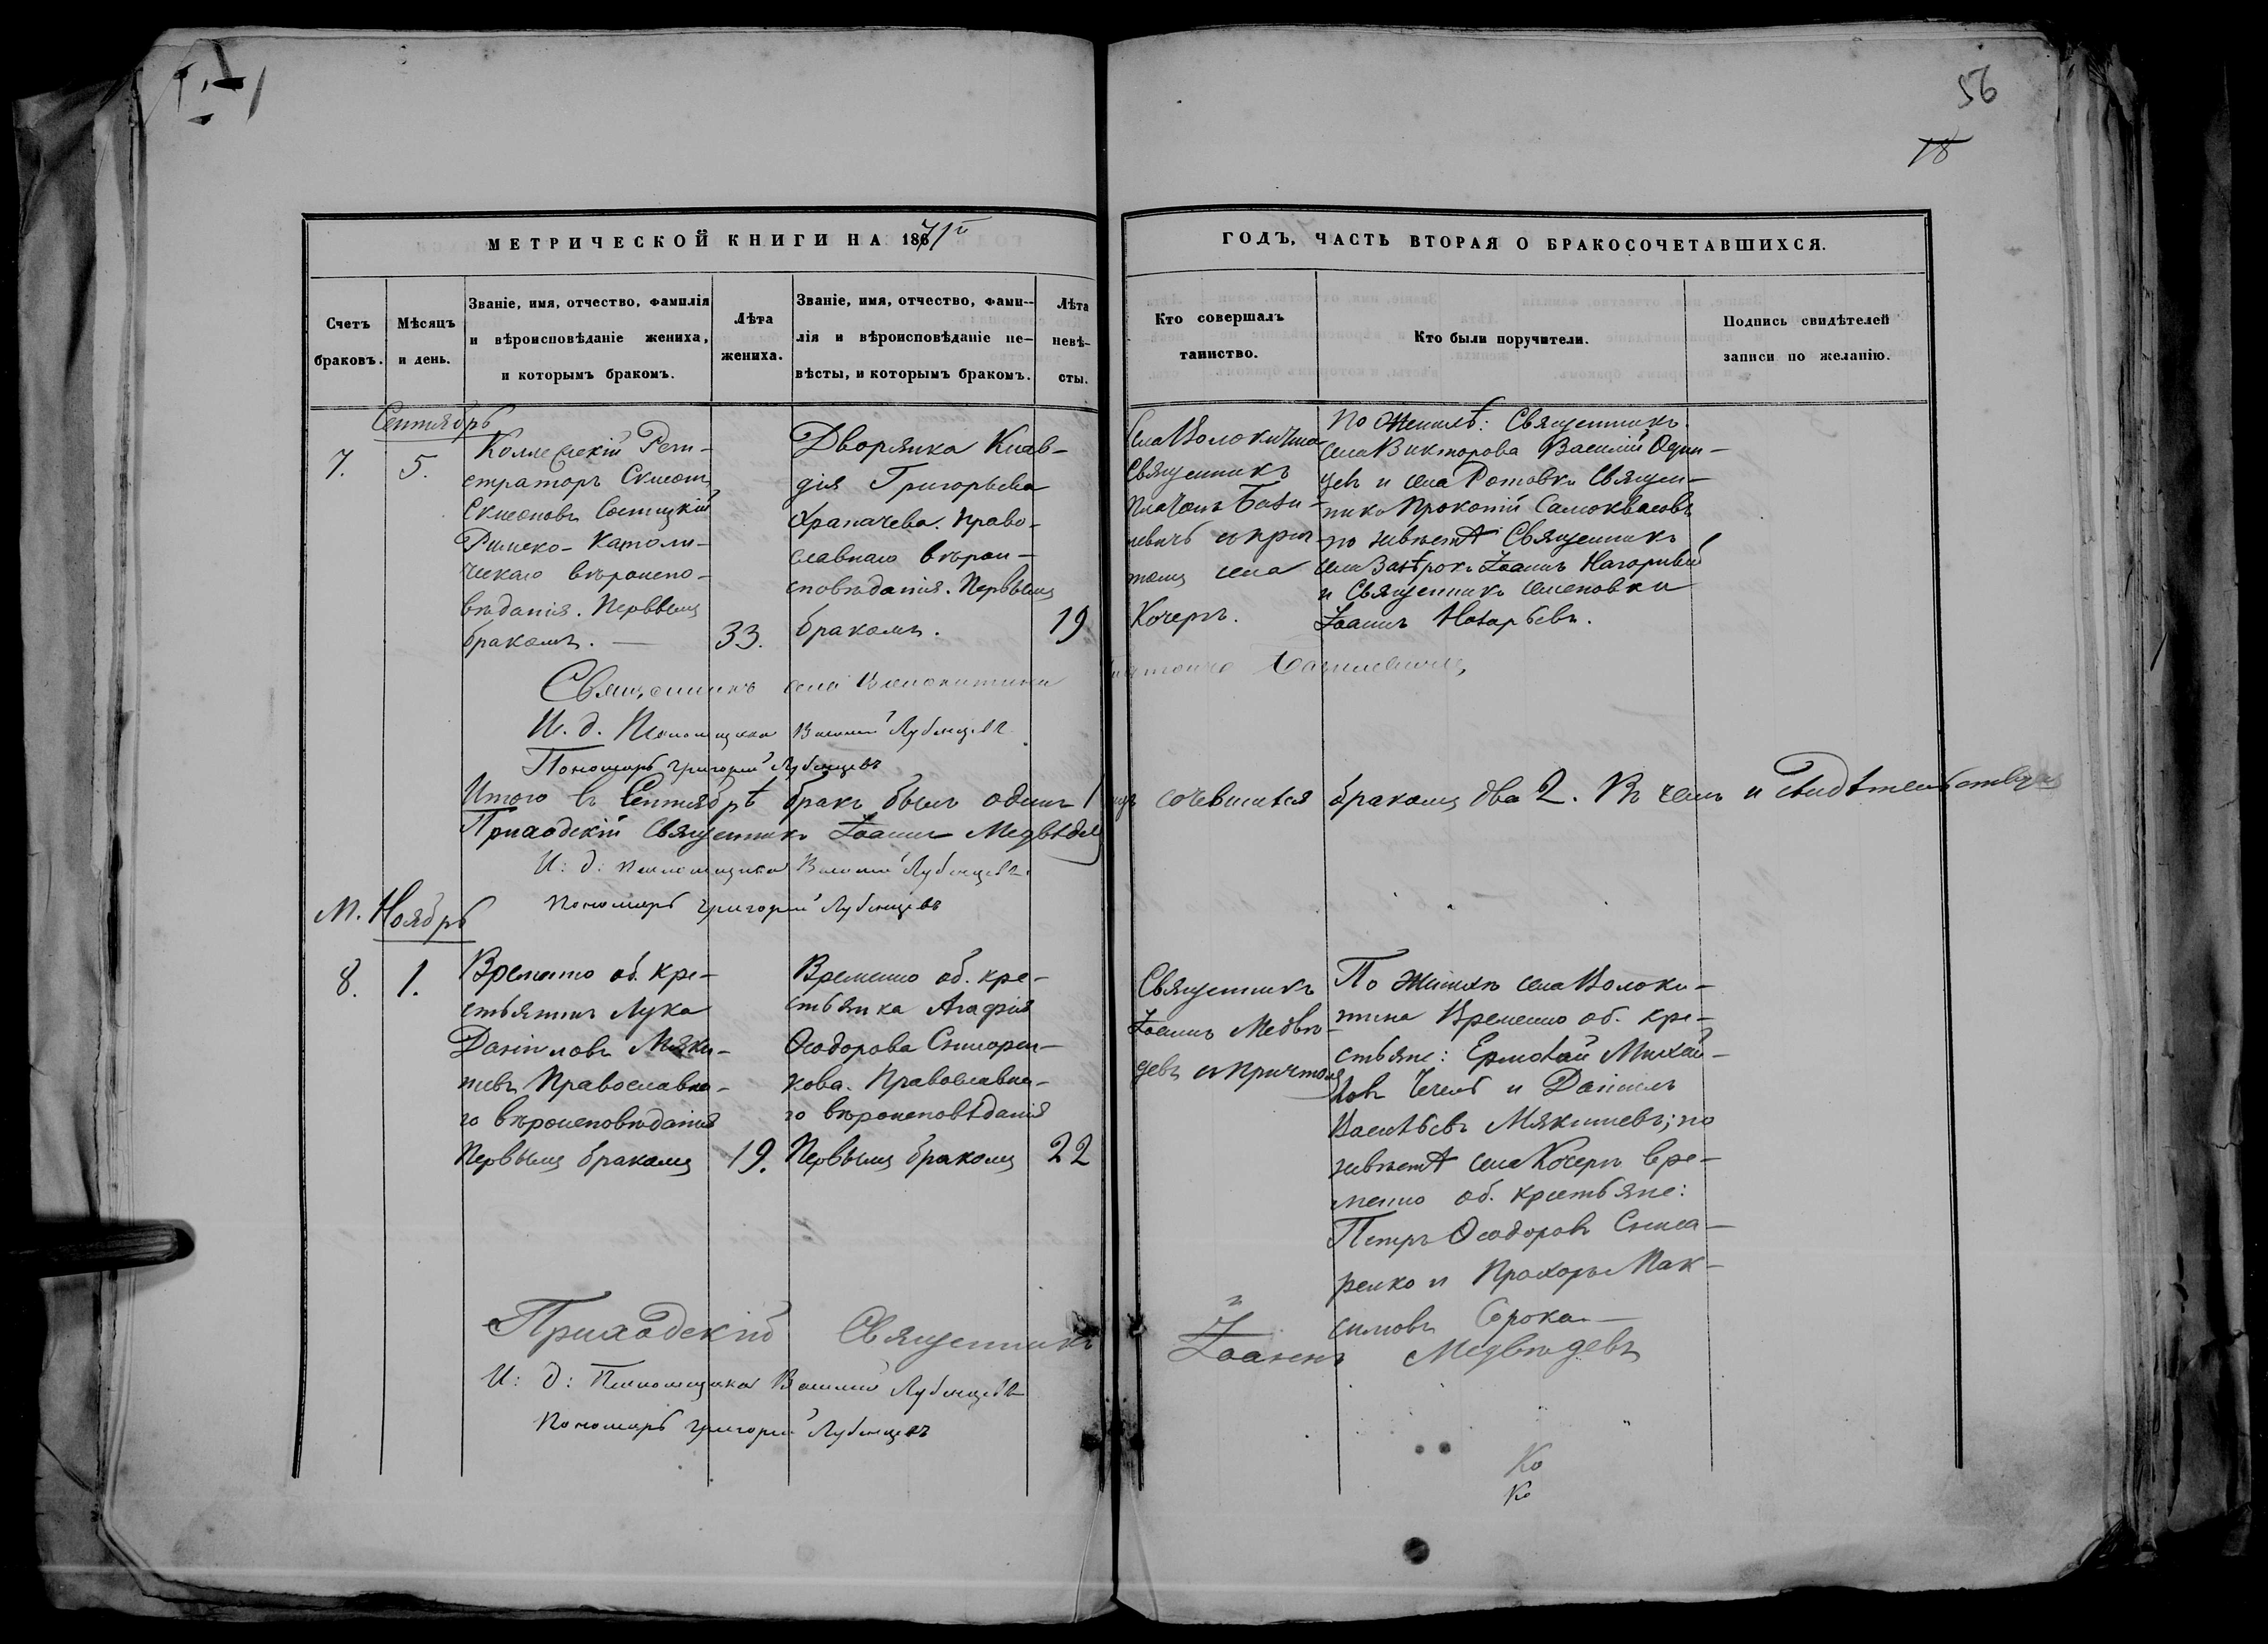 56
18
МЕТРИЧЕСКОЙ КНИГИ НА 1871й
ГОДЪ, ЧАСТЬ ВТОРАЯ О БРАКОСОЧЕТАВШИХСЯ.
Счетъ
браковъ.
Мѣсяцъ
и день.
Званіе, имя, отчество, фамилія
и вѣроисповѣданіе жениха,
и которымъ бракомъ.
Лѣта
жениха.
Званіе, имя, отчество, фами-
лія и вѣроисповѣданіе не-
вѣсты, и которымъ бракомъ.
Лѣта
невѣ-
сты.
Кто совершалъ
таинство.
Кто были поручители.
Подпись свидѣтелей
записи по желанію.
Сентябрь
7.
5.
Коллежскій Реги-
страторъ Симеонъ
Симеоновъ
Римско-Католи-
ческаго вѣроиспо-
вѣданія. Первымъ
бракомъ. —
33.
Дворянка Клав-
дія Григорьева
Храпачева. Право-
славнаго вѣрои-
сповѣданія. Первымъ
бракомъ.
19
Села Волокитина
Священникъ
Платонъ Бази-
левичъ съ прич-
томъ села
Кочергъ.
По женихѣ: Священникъ
села Викторова Василій Один-
цовъ и села Ротовки Священ-
никъ Прокопій Самоквасовъ
по невѣстѣ Священникъ
села Іоаннъ Нагорный
и Священникъ
Іоаннъ
Священникъ села Волокитина
Платонъ Базилевичъ
И. д. Псаломщика Василій Лубенцевъ
Пономарь Григорій Лубенцевъ
Итого въ Сентябрѣ бракъ былъ одинъ 1 сочевшихся бракомъ два 2. Въ чемъ и свидѣтельствуемъ
Приходскій Священникъ Іоаннъ Медвѣдевъ
И: д: Псаломщика Василій Лубенцевъ
Пономарь Григорій Лубенцевъ
М. Ноябрь
8.
1.
Временно об. кре-
стьянинъ Лука
Даніиловъ Мяки-
шевъ Православна-
го вѣроисповѣданія
Первымъ бракомъ
19.
Временно об. кре-
стьянка Агафія
Ѳеодорова
кова. Православна-
го вѣроисповѣданія
Первымъ бракомъ
22
Священникъ
Іоаннъ Медвѣ-
девъ съ причтомъ
По женихѣ села Волоки-
тина Временно об. кре-
стьяне: Ермолай Михай-
ловъ и Даніилъ
Васильевъ Мякишевъ; по
невѣстѣ села Кочергъ вре-
менно об. крестьяне:
Петръ Ѳеодоровъ
ренко и Прохоръ Мак-
симовъ Сорока. —
Приходскій Священникъ Іоаннъ Медвѣдевъ
И: д: Псаломщика Василій Лубенцевъ
Пономарь Григорій Лубенцевъ
Ко
Ко